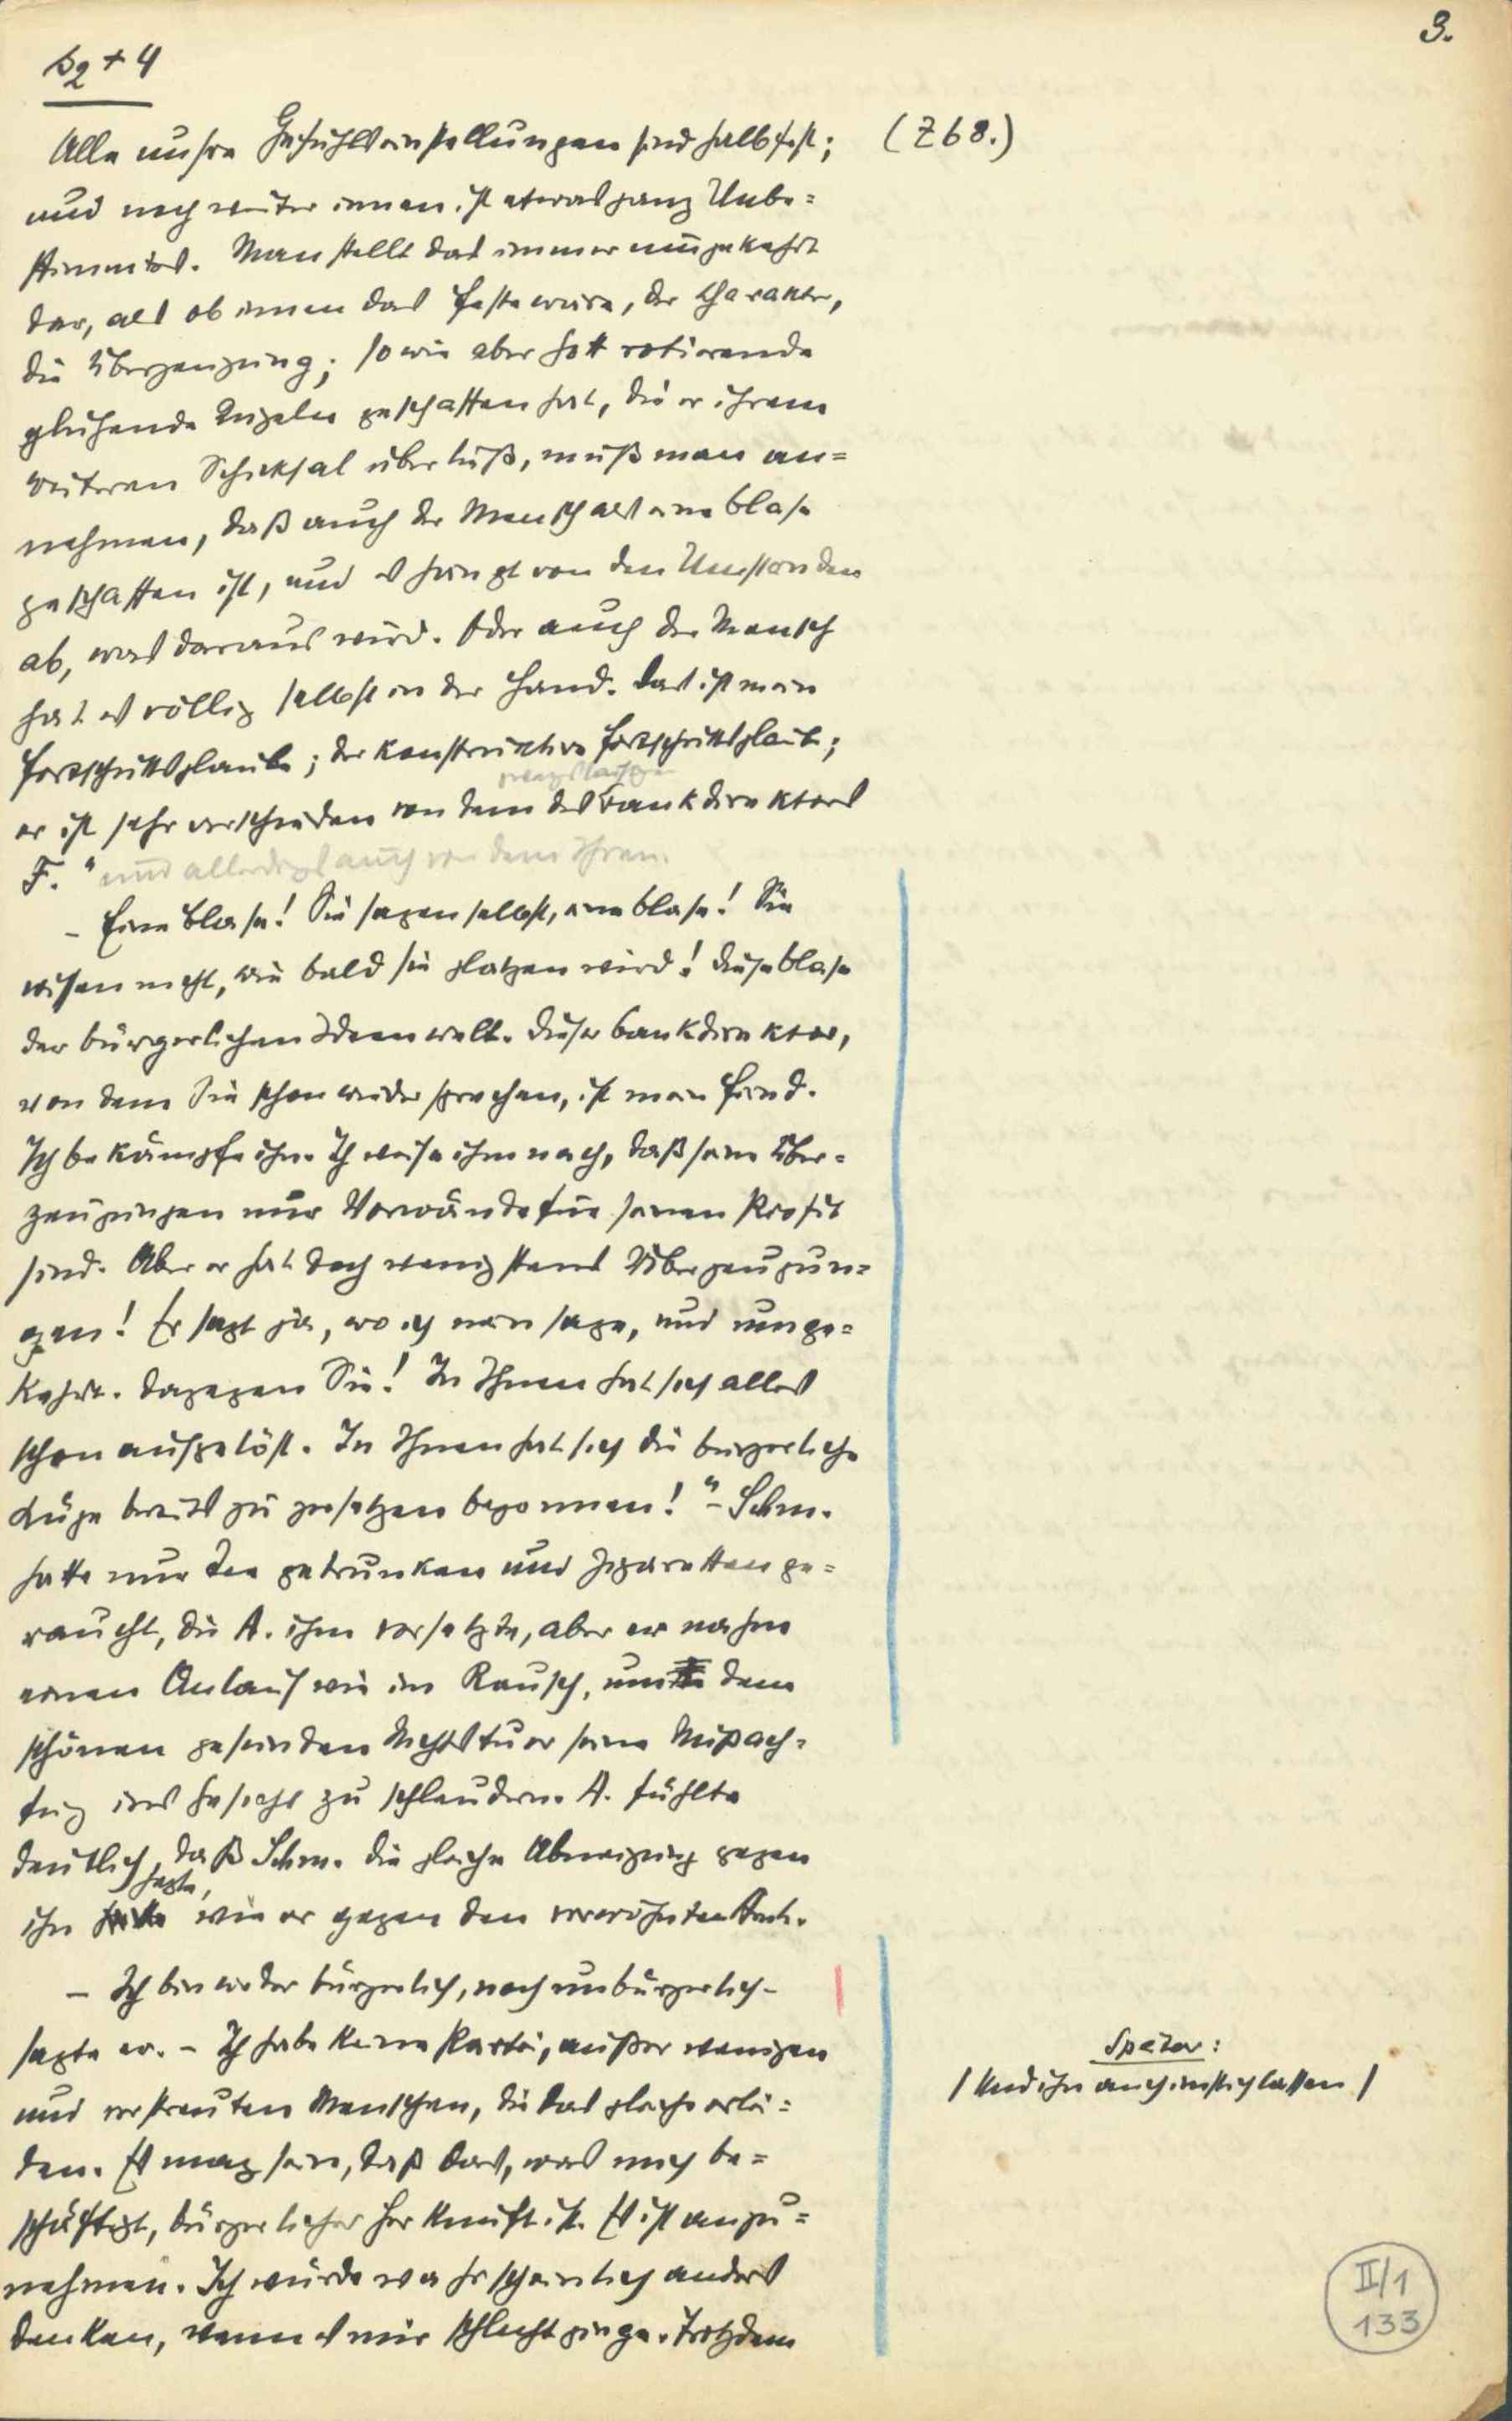 3.
s2 + 4
Alle unsre Gefühlseinstellungen sind halbfest; (Z 68.)
und noch weiter innen ist etwas ganz Unbe=
stimmtes. Man stellt das immer umgekehrt
dar, als ob innen das Feste wäre, der Charakter,
die Überzeugung; so wie aber Gott rotierende
glühende Kugeln geschaffen hat, die er ihrem
weiteren Schicksal überließ, muß man an=
nehmen, daß auch der Mensch als eine Blase
geschaffen ist, und es hängt von den Umständen
ab, was daraus wird. Oder auch der Mensch
hat es völlig selbst in der Hand. Das ist mein
Fortschrittsglaube; der konstruktive Fortschrittsglaube;
er ist sehr verschieden von dem des Bankdirektors
F. " und allerdings auch von dem Ihren.
– Eine Blase! Sie sagen selbst, eine Blase! Sie
wissen nicht, wie bald sie platzen wird! Diese Blase
der bürgerlichen Ideenwelt. Dieser Bankdirektor,
von dem Sie schon wieder sprechen, ist mein Feind.
Ich bekämpfe ihn. Ich weise ihm nach, daß seine Über=
zeugungen nur Vorwände für seinen Profit
sind. Aber er hat doch wenigstens Überzeugun=
gen! Er sagt ja, wo ich nein sage, und umge=
kehrt. Dagegen Sie! In Ihnen hat sich alles
schon aufgelöst. In Ihnen hat sich die bürgerliche
Lüge bereits zu zersetzen begonnen! " – Schm.
hatte nur Tee getrunken und Zigaretten ge=
raucht, die A. ihm vorsetzte, aber er nahm
einen Anlauf wie im Rausch, um dem
schönen gesunden Nichtstuer seine Mißach=
tung ins Gesicht zu schleudern. A. fühlte
deutlich, daß Schm. die gleiche Abneigung gegen
hegte,
ihn hatte wie er gegen den verwöhnten Arnh.
– Ich bin weder bürgerlich, noch unbürgerlich –
sagte er. – Ich habe keine Partei, außer wenigen
und verstreuten Menschen, die das gleiche erlei=
den. Es mag sein, daß das, was mich be=
schäftigt, bürgerlicher Herkunft ist. Es ist anzu=
nehmen. Ich würde wahrscheinlich anders
denken, wenn es mir schlecht ginge. Trotzdem
Später:
/ Und ihn auch im Stich lassen /
II/1
133